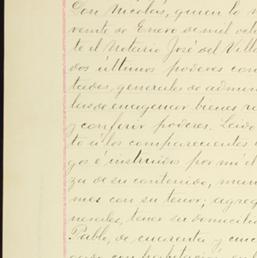 Don Nicolás, quien lo
veinte de Enero de mil
te el Notario José del Villa
dos últimos poderes con
tados, generales de admin
las de enagenar bienes ra
y conferir poderes. Leido
to á los comparecientes
gos é instruidos por mi el
za de su contenido, mani
mos con su tenor; agreg
nerales, tener su domicilio
Pablo, de cuarenta y cinc